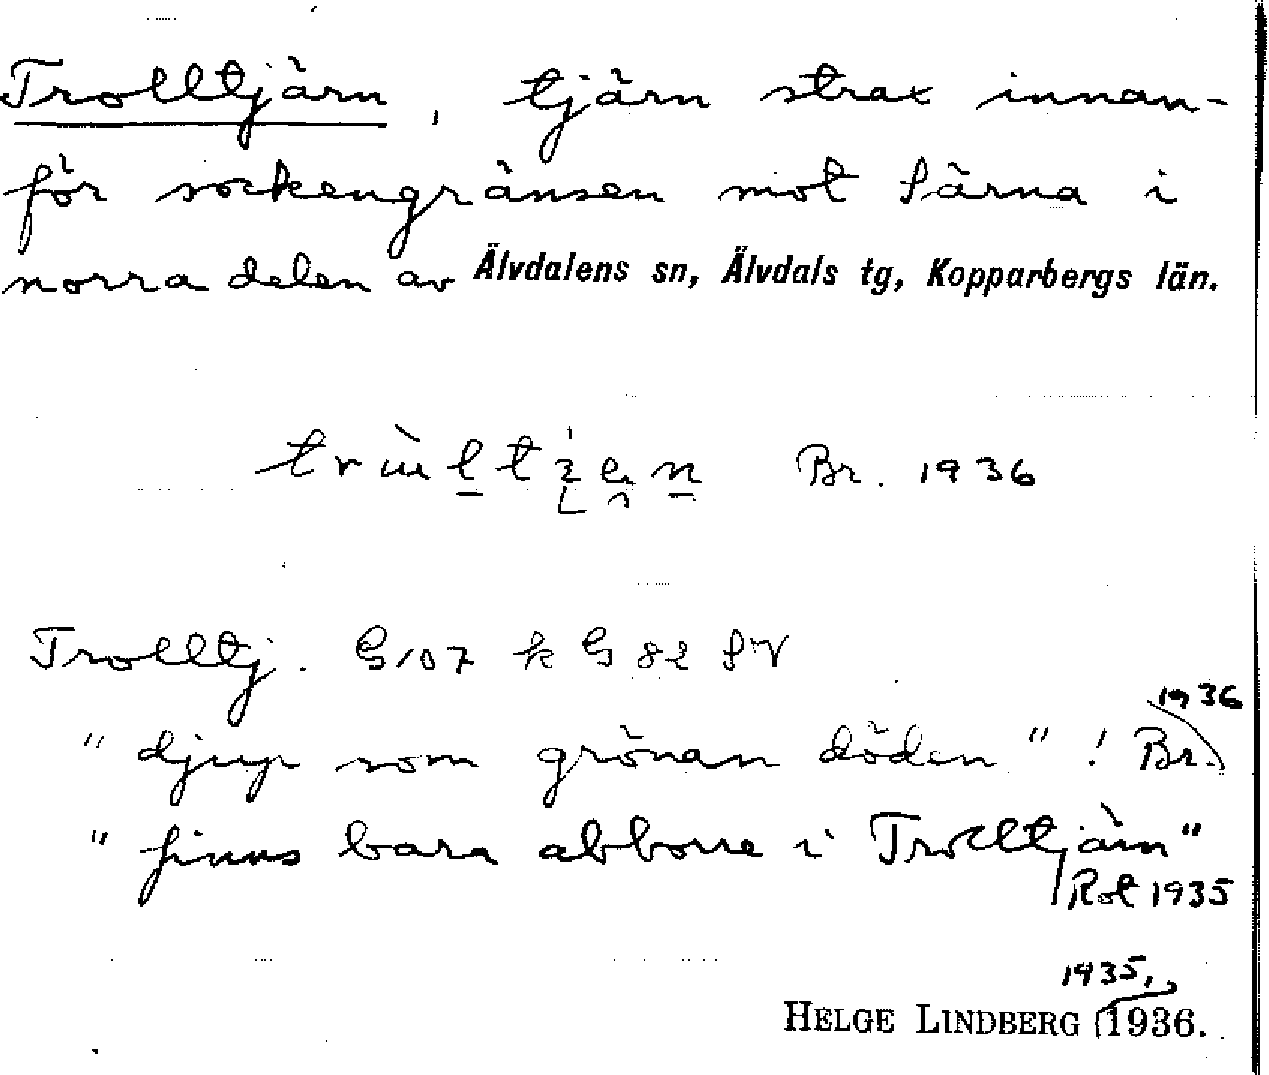 Trolltjärn, tjärn strax innan-
för sockengränsen mot Särna i
norra delen av Älvdalens sn, Älvdals tg, Kopparbergs län.
Br. 1936
Trolltj. G107 k G 82 SV
1936
"djup som grönan döden"! Br.
"finns bara abborre i Trolltjärn"
Rot 1935
1935,
HELGE LINDBERG 1936.